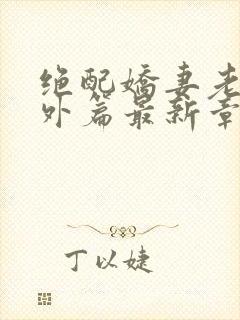 绝配娇妻老
外篇最新章
丁以婕